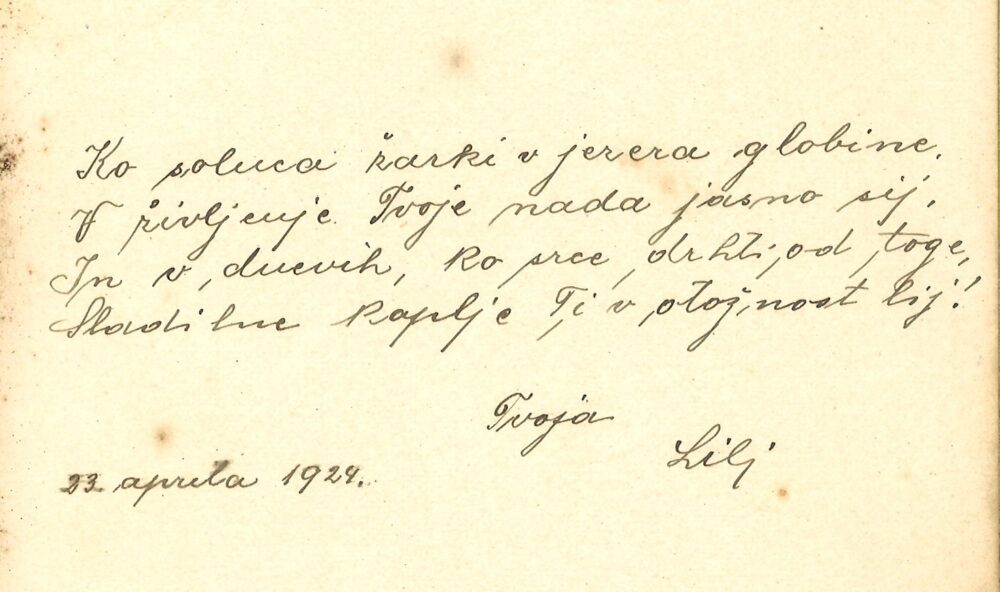 Ko solnca žarki v jezera globine,
V življenje Tvoje nada jasno sij,
In v dnevih, ko srce drhti od toge,
Hladilne kaplje Ti v otožnost lij!
Tvoja
Lilj
23. aprila 1924.